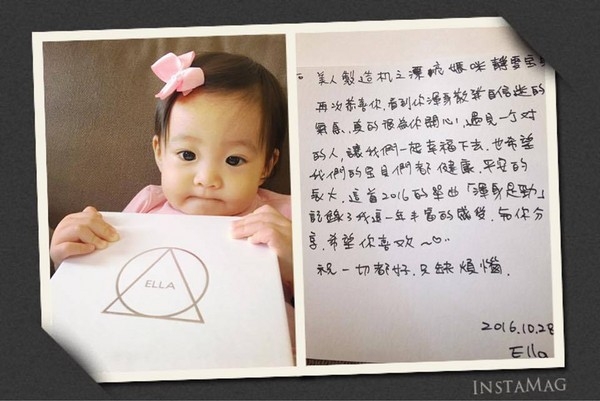 ELLA
美人製造机之漂流媽咪 轉雪寶
再次恭喜你,看到你渾身散發自信迷的
氣息,真的很為你開心!遇見一个对
的人,讓我們一起幸福下去,也希望
我們的宝貝們都健康、平安的
長大,這首2016的單曲「渾身是勁」
記錄了我這一年丰富的感受,與你分
享,希望你喜欢~♡··
祝一切都好,只缺煩惱.
2016.10.28
Ella
INSTAMAG